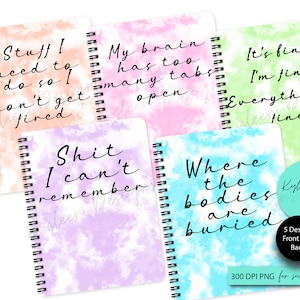 Stuff I
need to
do so I
don't get
fired
My brain
has too
many tabs
open
It's fine
I'm fine
Everything
fine
Shit
I can't
remember
Where
the
bodies
are
buried
5 Des
Front
Ba
300 DPI PNG for